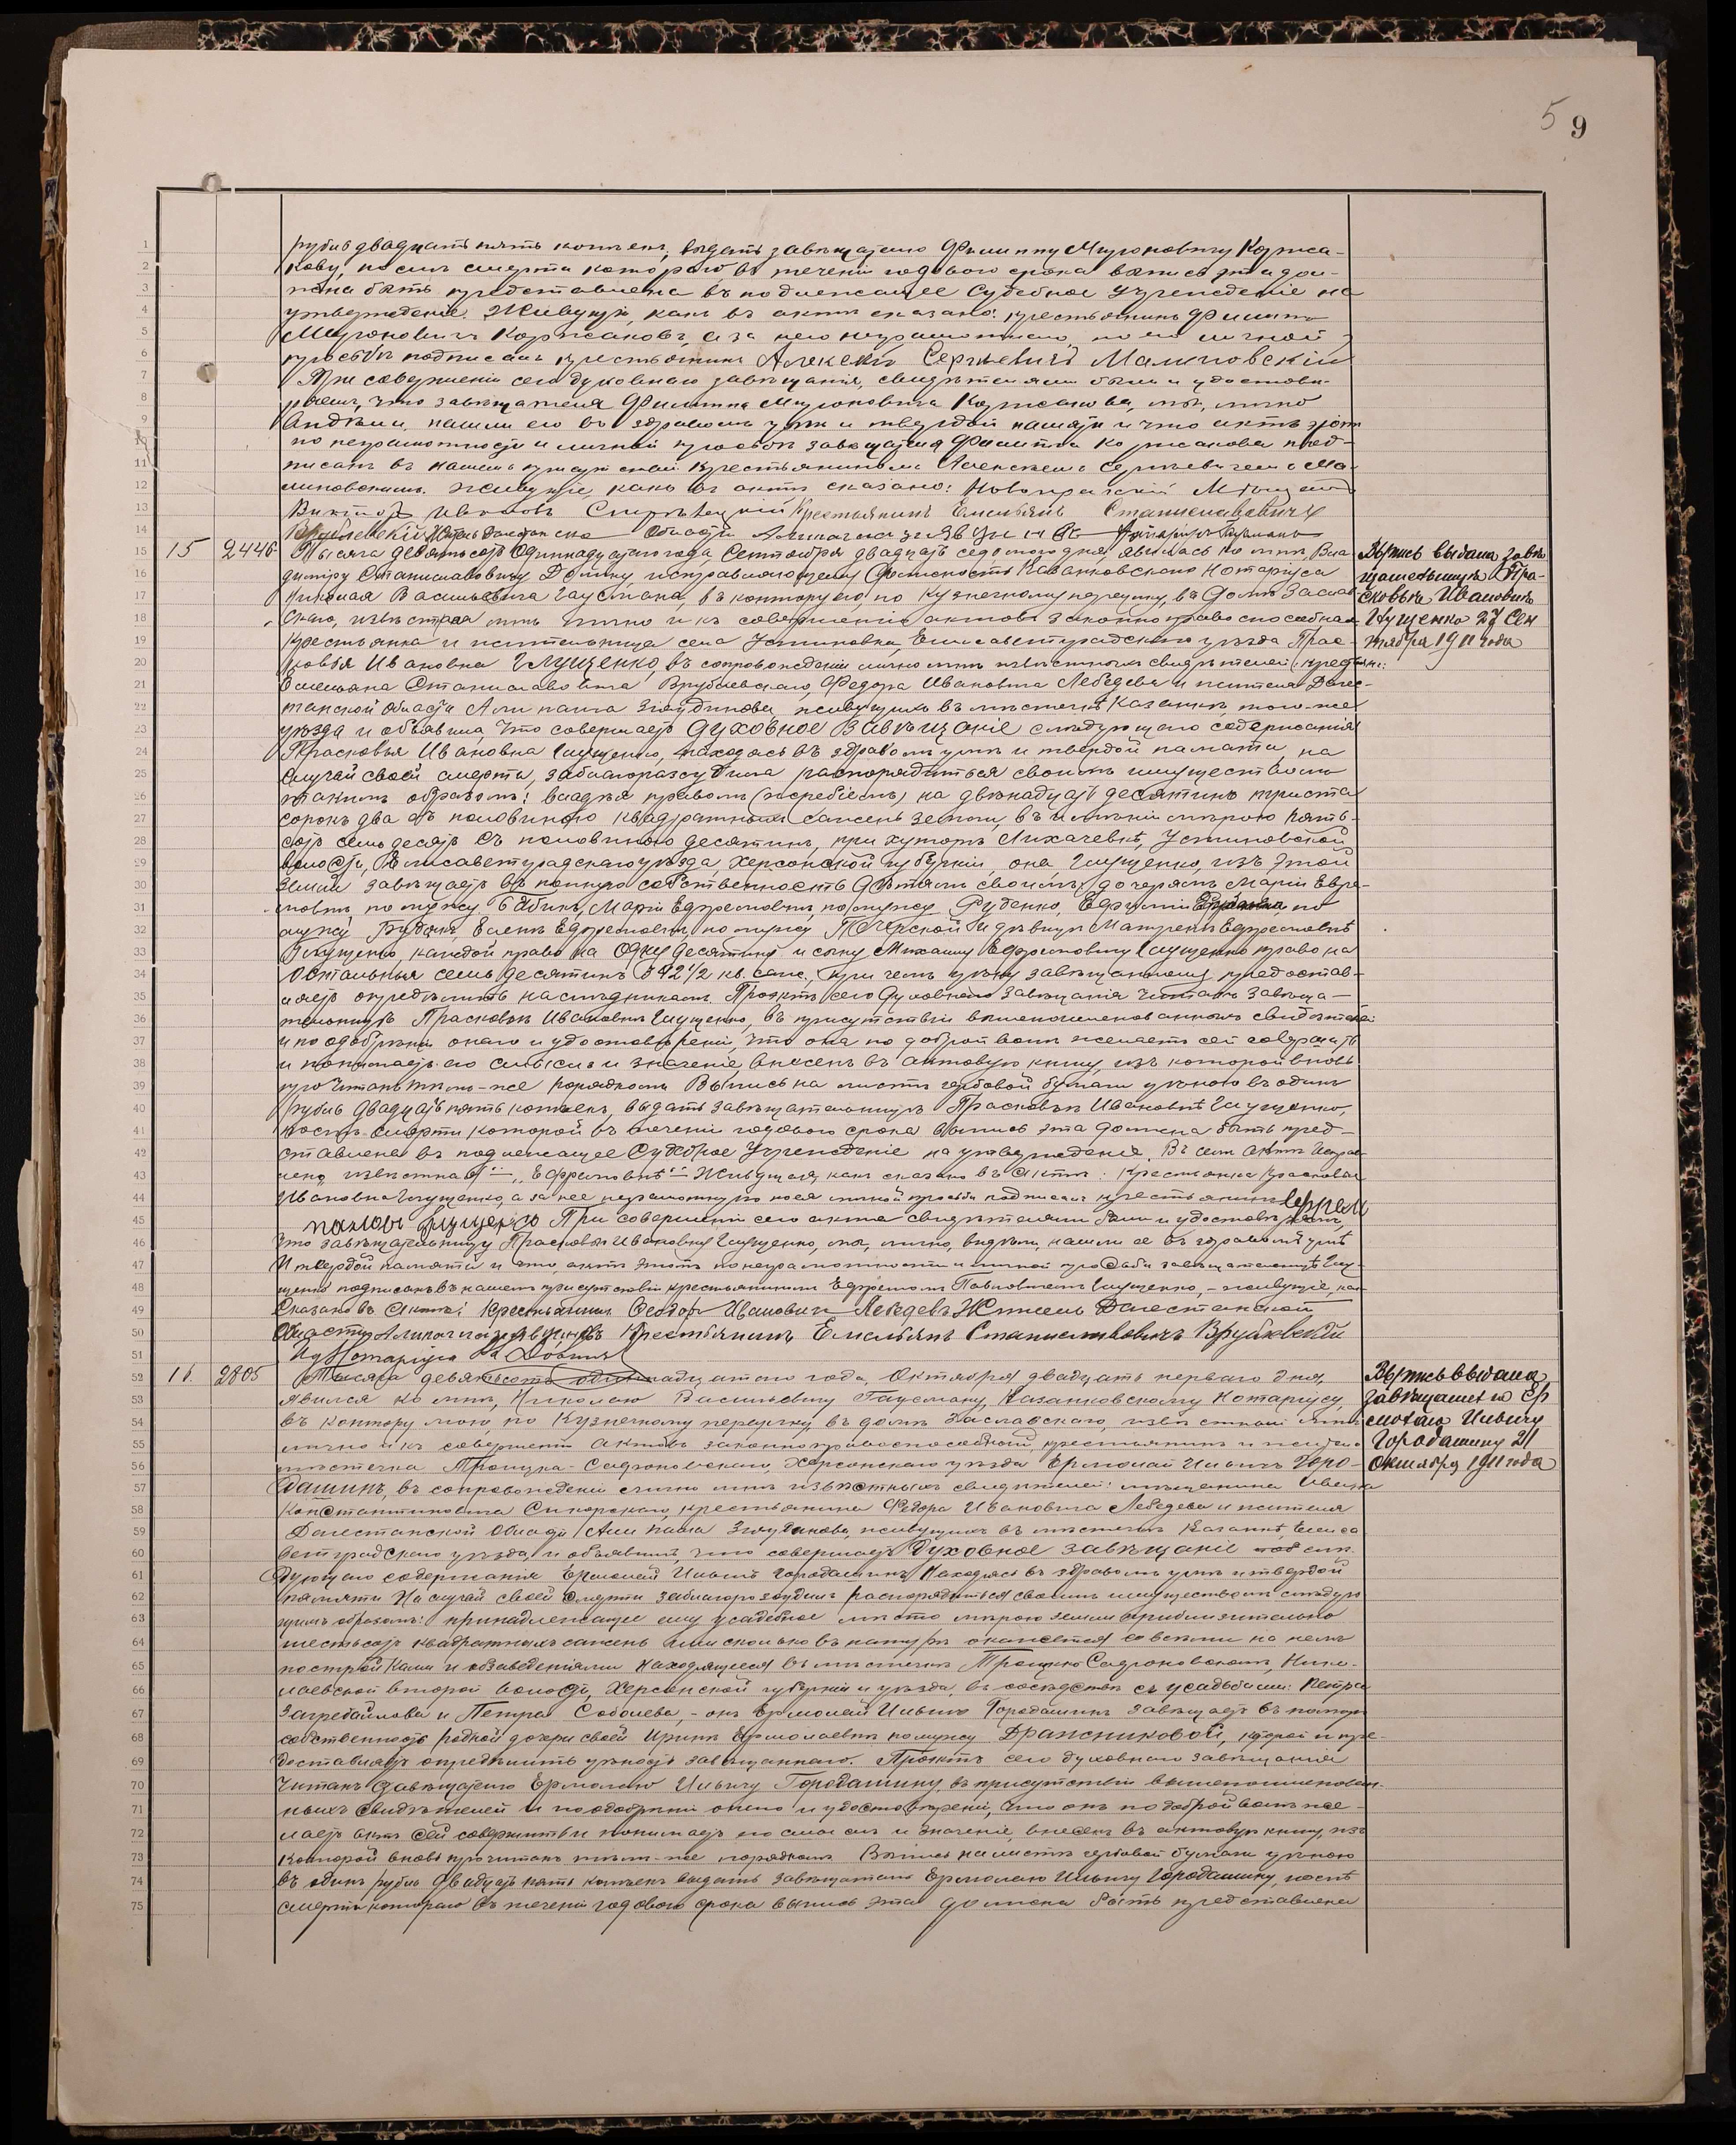 5 9
рубль двадцать пять копѣекъ, выдать завѣщателю Филиппу Мироновичу Коржа-
кову, послѣ смерти котораго въ теченіи годового срока выпись эта дол-
жна быть представлена въ подлежащее Судебное Учрежденіе на
утвержденіе. Живущій, какъ въ актѣ сказано: крестьянинъ Филиппъ
Мироновичъ Коржаковъ, а за него неграмотнаго, по его личной
просьбѣ подписалъ крестьянинъ Алексѣй Сергѣевичъ Малиновскій
При совершеніи сего духовнаго завѣщанія, свидѣтелями были и удостовѣ-
ряемъ, что завѣщателя Филиппа Мироновича Коржакова, мы, лично
видѣли, нашли его въ здравомъ умѣ и твердой памяти и что актъ этотъ
по неграмотности и личной просьбѣ завѣщателя Филиппа Коржакова под-
писанъ въ нашемъ присутствіи Крестьяниномъ Алексѣемъ Сергѣевичемъ Ма-
линовскимъ. Живущіе, какъ въ актѣ сказано: Новопражскій Мѣщанинъ
Викторъ Ивановъ Крестьянинъ Емельянъ Станиславовичъ
Врублевскій Житель Дагестанской Области Нотаріусъ Гаусманъ
15 2446 Тысяча девятьсотъ Одиннадцатаго года, Сентября двадцать седьмого дня, явилась ко мнѣ, Вла-
димиру Станиславовичу Домину, исправляющему Должность Казанковскаго Нотаріуса
Николая Васильевича Гаусмана, въ контору его, по Кузнечному переулку, въ домѣ Заслав-
скаго, извѣстная мнѣ лично и къ совершенію актовъ законно правоспособная
крестьянка и жительница села Устиновки, Елисаветградскаго уѣзда Прас-
ковья Ивановна Глущенко, въ сопровожденіи лично мнѣ извѣстныхъ свидѣтелей: крестьянъ:
Емельяна Станиславовича Врублевскаго, Федора Ивановича Лебедева и жителя Дагес-
танской Области Али паша Зіяудинова, живущихъ въ мѣстечкѣ Казанкѣ, того-же
уѣзда и объявила, что совершаетъ Духовное Завѣщаніе слѣдующаго содержанія
Прасковья Ивановна Глущенко, находясь въ здравомъ умѣ и твердой памяти, на
случай своей смерти, заблагоразсудила распорядиться своимъ имуществомъ
такимъ образомъ: владѣя правомъ (жребіемъ) на двѣнадцать десятинъ триста
сорокъ два съ половиною квадратныхъ сажень земли, въ имѣніи мѣрою пять-
сотъ семьдесятъ съ половиною десятинъ, при хуторѣ Лихачевкѣ, Устиновской
волости, Елисаветградскаго уѣзда, Херсонской губерніи, она, Глущенко, изъ этой
земли завѣщаетъ въ полную собственность дѣтямъ своимъ, дочерямъ Маріи Ефре-
мовнѣ, по мужу Бабинъ, Маріи Ефремовнѣ, по мужу Руденко, Ефиміи по
мужу Елене Ефремовнѣ по мужу и дѣвицѣ Матренѣ Ефремовнѣ
Глущенко, каждой право на Одну десятину и сыну Михаилу Ефремовичу Глущенко право на
остальныя семь десятинъ 342 1/2 кв. саж., при чемъ цѣну завѣщаннаго предостав-
ляетъ опредѣлить наслѣдникамъ. Проэктъ сего Духовнаго Завѣщанія читанъ Завѣща-
тельницѣ Прасковьѣ Ивановнѣ Глущенко, въ присутствіи вышепоименованныхъ свидѣтелей
и по одобреніи онаго и удостовѣреніи, что она по доброй волѣ желаетъ сей совершить
и понимаетъ его смыслъ и значеніе, внесенъ въ актовую книгу, изъ которой вновь
прочитанъ тѣмъ-же порядкомъ. Выпись на листѣ гербовой бумаги цѣною въ одинъ
рубль двадцать пять копѣекъ, выдать завѣщательницѣ Прасковьѣ Ивановнѣ Глущенко,
послѣ смерти которой въ теченіи годового срока выпись эта должна быть пред-
ставлена въ подлежащее Судебное Учрежденіе на утвержденіе. Въ семъ актѣ исправ-
лено "извѣстная", "Ефремовнѣ". Живущая, какъ сказано въ актѣ: Крестьянка Прасковья
Ивановна Глущенко, а за нее неграмотную по ея личной просьбѣ подписалъ крестьянинъ Ефрем
Глущенко При совершеніи сего акта свидѣтелями были и удостовѣряемъ,
что завѣщательницу Прасковью Ивановну Глущенко, мы, лично, видѣли, нашли ее въ здравомъ умѣ
и твердой памяти и что актъ этотъ по неграмотности и личной просьбѣ завѣщательницы Глу-
щенко подписанъ въ нашемъ присутствіи крестьяниномъ Ефремомъ Павловичемъ Глущенко,- живущіе, какъ
сказано въ Актѣ: Крестьянинъ Федор Иванович Лебедевъ Житель Дагестанской
Области Крестьянинъ Емельянъ Станиславовичъ Врублевскій
Нотаріуса
Выпись выдана завѣ-
щательницѣ Пра-
сковьѣ Ивановнѣ
Глущенко 27 Сен
тября 1911 года
16 2805 Тысяча девятьсотъ одиннадцатаго года, Октября двадцать перваго дня,
явился ко мнѣ, Николаю Васильевичу Гаусману, Казанковскому Нотаріусу,
въ контору мою, по Кузнечному переулку, въ домѣ Заславскаго, извѣстный мнѣ
лично и къ совершенію актовъ законно правоспособный крестьянинъ и житель
мѣстечка Троицко-Сафоновскаго, Херсонскаго уѣзда Ермолай Ильичъ Горо-
дашинъ, въ сопровожденіи лично мнѣ извѣстныхъ свидѣтелей: мѣщанина Ивана
Константиновича Сикорскаго, крестьянина Федора Ивановича Лебедева и жителя
Дагестанской Области Али паша Зіяудинова, живущихъ въ мѣстечкѣ Казанкѣ, Елиса
ветградскаго уѣзда, и объявилъ, что совершаетъ Духовное завѣщаніе слѣ
дующаго содержанія Ермолай Ильичъ Городашинъ, находясь въ здравомъ умѣ и твердой
памяти на случай своей смерти заблагоразсудилъ распорядиться своимъ имуществомъ слѣдую
щимъ образомъ: принадлежащее ему усадебное мѣсто мѣрою земли приблизительно
шестьсотъ квадратныхъ сажень или сколько въ натурѣ окажется со всѣми на немъ
постройками и обзаведеніями находящееся въ мѣстечкѣ Троицко Сафоновскомъ, Нико-
лаевской второй волости, Херсонской губерніи и уѣзда, въ сосѣдствѣ съ усадьбами: Петра
Загребайлова и Петра Соболева,- онъ Ермолай Ильичъ Городашинъ завѣщаетъ въ полную
собственность родной дочери своей Иринѣ Ермолаевнѣ по мужу Дражниковой, которой и пре-
доставляетъ опредѣлить цѣнность завѣщаннаго. Проэктъ сего духовнаго завѣщанія
читанъ Завѣщателю Ермолаю Ильичу Городашину, въ присутствіи вышепоименован-
ныхъ свидѣтелей и по одобреніи онаго и удостовѣреніи, что онъ по доброй волѣ же-
лаетъ актъ сей совершить и понимаетъ его смыслъ и значеніе, внесенъ въ актовую книгу, изъ
которой вновь прочитанъ тѣмъ-же порядкомъ. Выпись на листѣ гербовой бумаги цѣною
въ одинъ рубль двадцать пять копѣекъ выдать завѣщателю Ермолаю Ильичу Городашину, послѣ
смерти котораго въ теченіи годового срока выпись эта должна быть представлена
Выпись выдана
завѣщателю Ер
молаю Ильичу
Городашину 21
Октября 1911 года